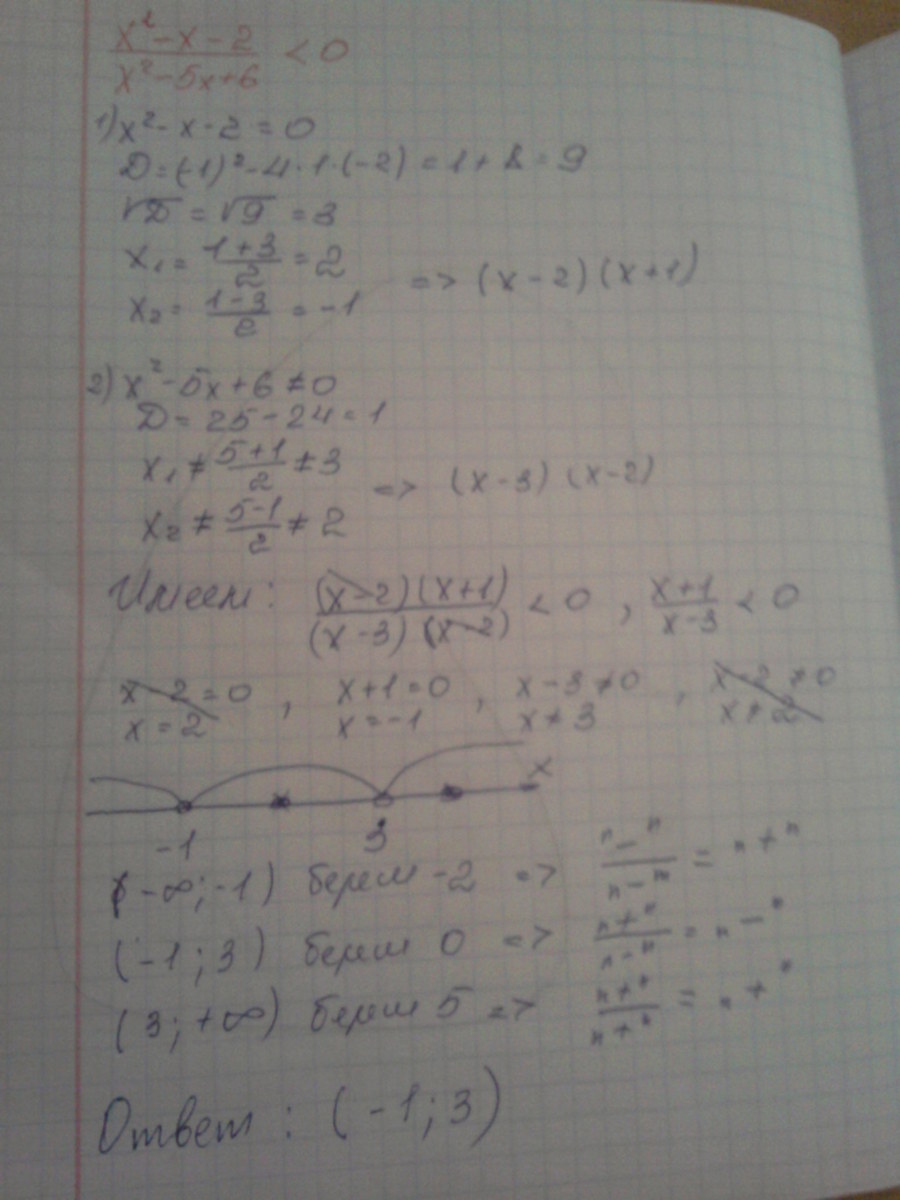 x²-x-2 / x²-5x+6 < 0
1) x²-x-2=0
D=(-1)²-4·1·(-2)=1+8=9
√D=√9=3
x₁=(1+3)/2=2
=> (x-2)(x+1)
x₂=(1-3)/2=-1
2) x²-5x+6≠0
D=25-24=1
x₁≠(5+1)/2≠3
=> (x-3)(x-2)
x₂≠(5-1)/2≠2
Имеем: (x-2)(x+1) / (x-3)(x-2) < 0, x+1 / x-3 < 0
x-2=0, x+1=0, x-3≠0, x-2≠0
x=2 x=-1 x≠3 x≠2
x
-1 3
(-∞;-1) берем -2 => "-" / "-" = "+"
(-1;3) берем 0 => "+" / "-" = "-"
(3;+∞) берем 5 => "+" / "+" = "+"
Ответ: (-1;3)